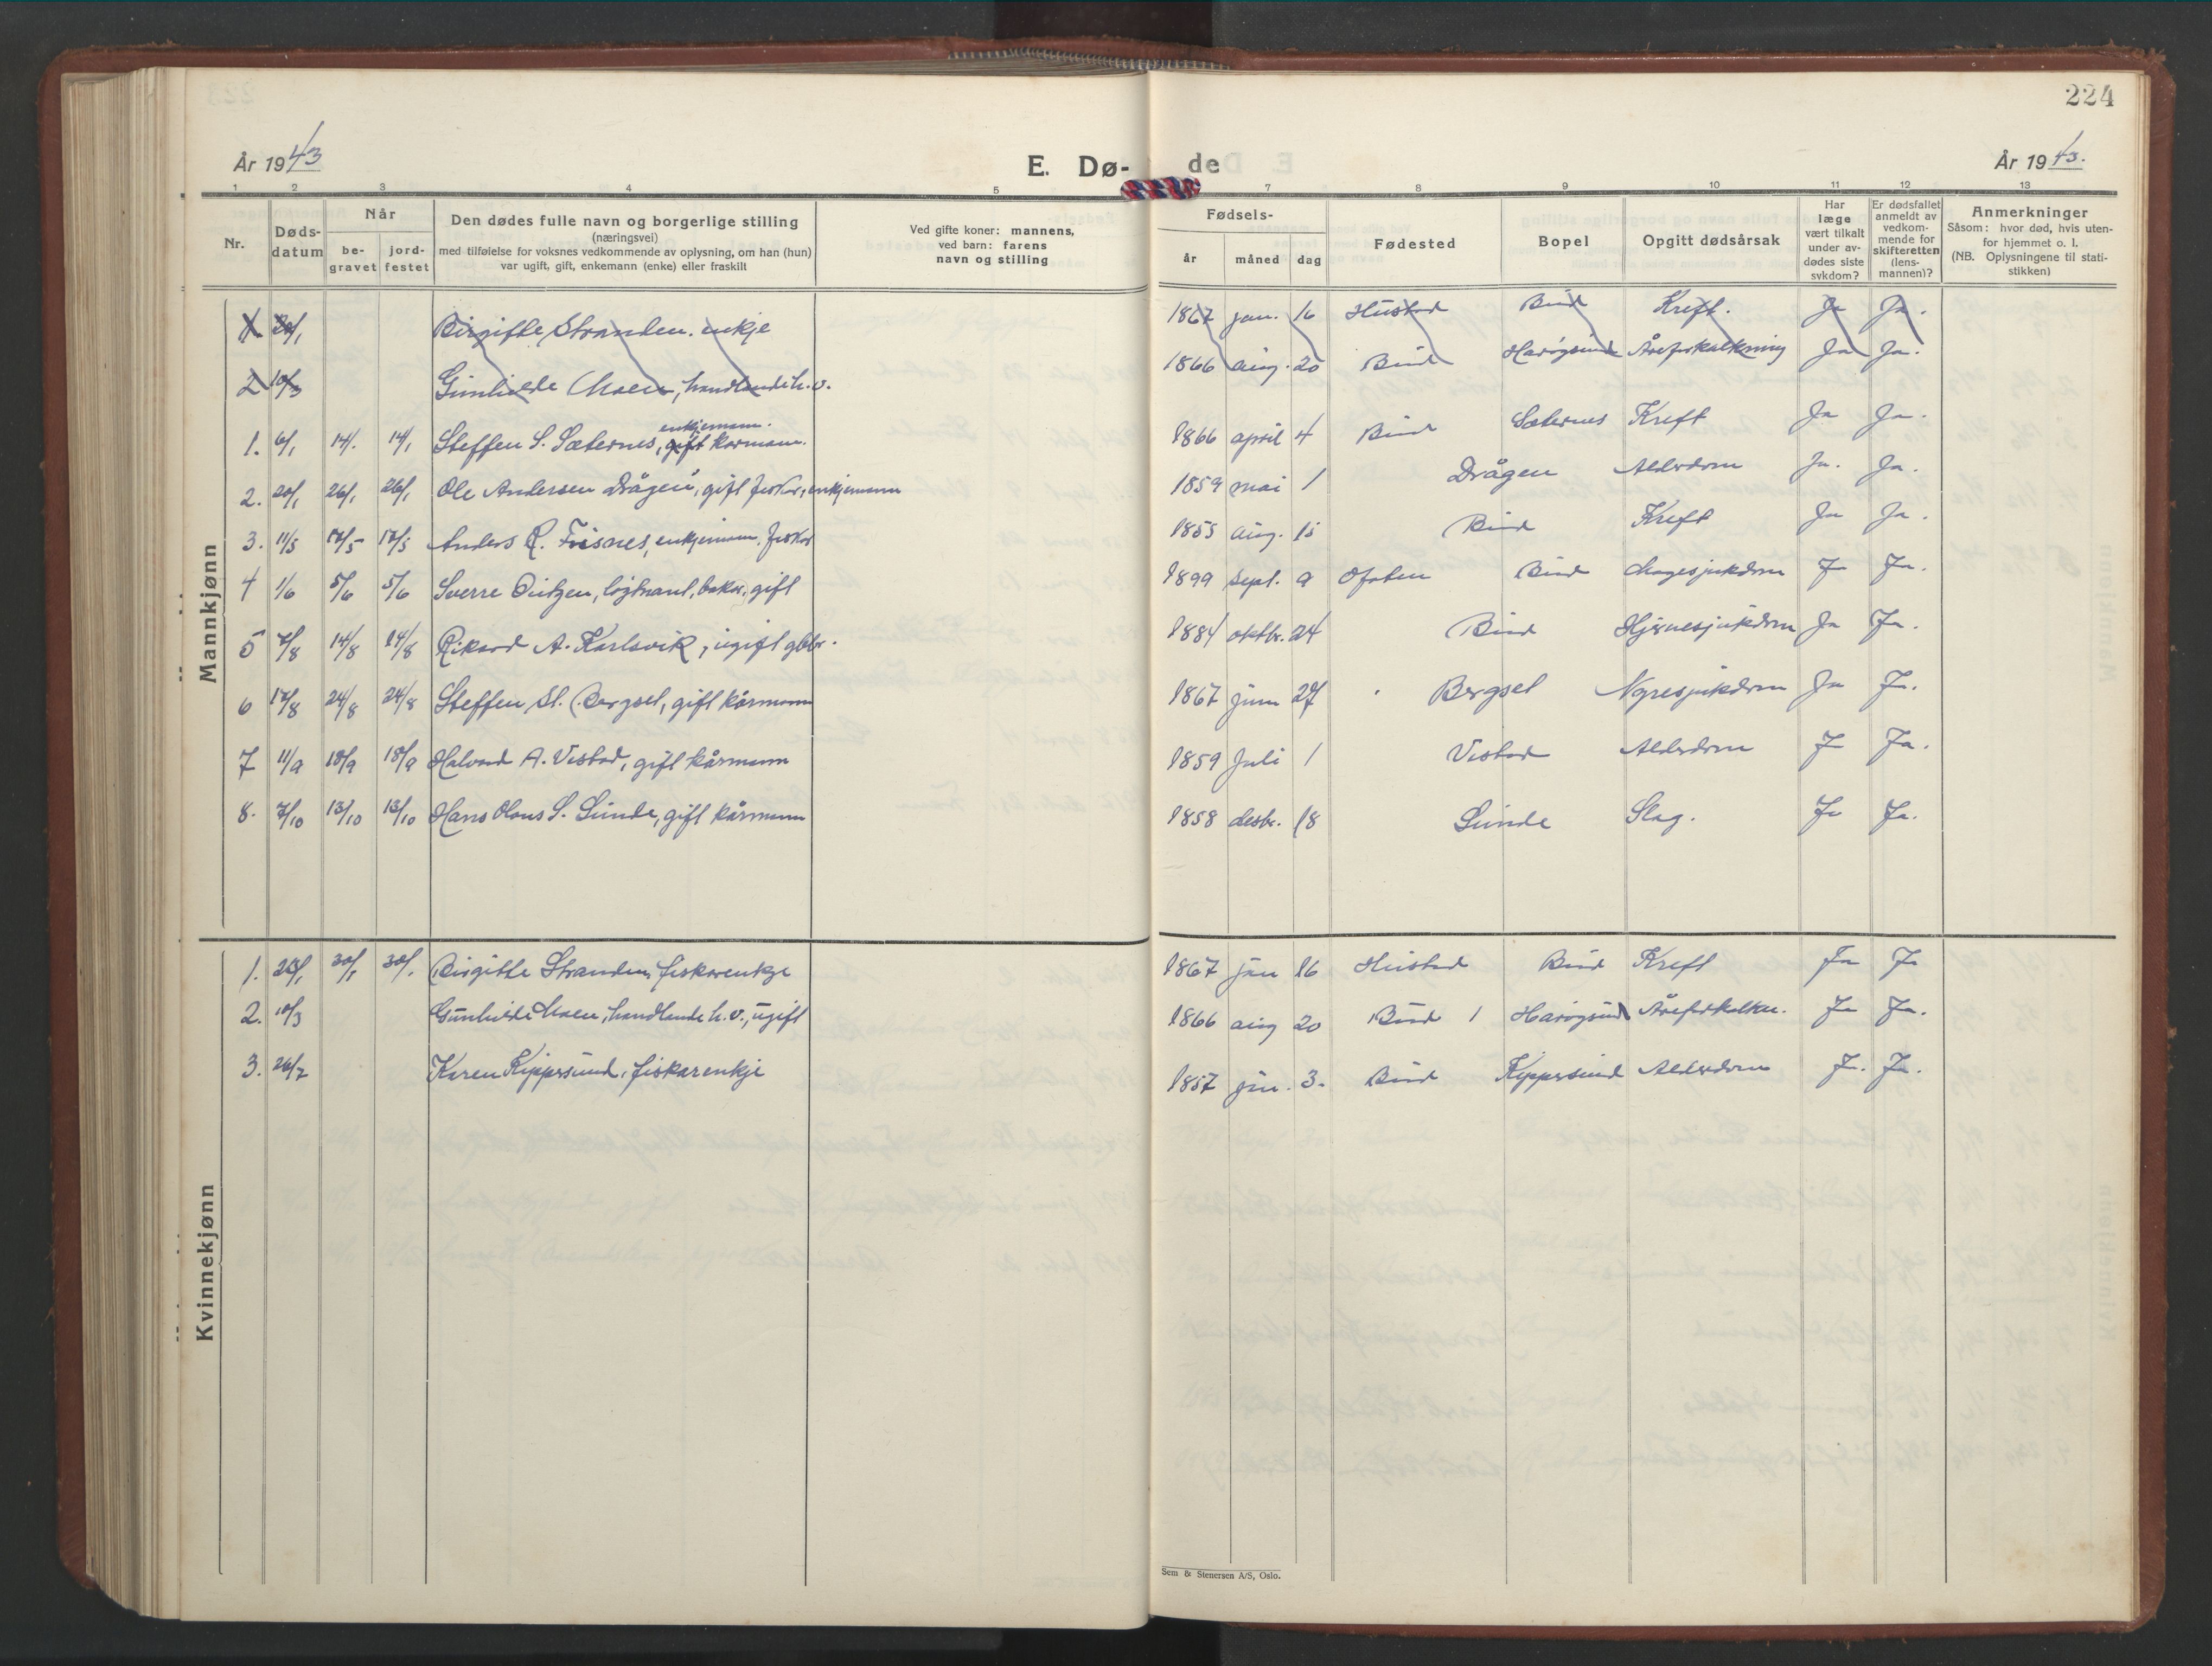 224
År 1943
E. Dø- de
År 1943.
1 2 3 4 5 7 8 9 10 11 12 13
Nr.
Døds-
datum
Når
be-
gravet
jord-
festet
Den dødes fulle navn og borgerlige stilling
(næringsvei)
med tilføielse for voksnes vedkommende av oplysning, om han (hun)
var ugift, gift, enkemann (enke) eller fraskilt
Ved gifte koner: mannens,
ved barn: farens
navn og stilling
Fødsels-
år måned dag
Fødested
Bopel
Opgitt dødsårsak
Har
læge
vært tilkalt
under av-
dødes siste
sykdom?
Er dødsfallet
anmeldt av
vedkom-
mende for
skifteretten
(lens-
mannen)?
Anmerkninger
Såsom: hvor død, hvis uten-
for hjemmet o. l.
(NB. Oplysningene til stati-
stikken)
Mannkjønn
1. 20/1 Birgitte Stranden. enkje 1867 jan. 16 Hustad Bud Kreft. Ja Ja.
2 10/3 Gunhilde Moen, handlende h.v. 1866 aug. 20 Bud Harøysund Åreforkalkning Ja Ja.
enkjemann.
1. 6/1 14/. 14/1 Steffen S. Sæternes, gift kårmann. 1866 april 4 Bud Sæternes Kreft Ja Ja.
2. 20/1 26/1 26/1 Ole Andersen Drågen, gift fiskar, enkjemann 1859 mai 1 Drågen Alderdom Ja. Ja.
3. 11/5 17/5 17/5 Anders R. Tisnes, enkjemann, fiskar 1855 aug. 15 Bud Kreft Ja Ja.
4 1/6 5/6 5/6 Sverre Quitzen, løytnant, bakar, gift 1899 sept. 9 Ofoten Bud Magesjukdom Ja Ja.
5 7/8 14/8 14/8 Rikard A. Karlsvik, ugift gbbr. 1884 oktbr. 24 Bud Hjernesjukdom Ja Ja.
6 17/8 24/8 24/8 Steffen St. Bergset, gift kårmann 1867 juni 27 Bergset Nyresjukdom Ja Ja.
7 11/9 18/9 18/9 Halvard A. Vestad, gift kårmann 1859 Juli 1 Vestad Alderdom Ja Ja.
8. 7/10 13/10 13/10 Hans Olaus S. Sunde, gift kårmann 1858 desbr. 18 Sunde Slag. Ja Ja.
Kvinnekjønn
1. 20/1 30/1 30/1 Birgitte Stranden, fiskarenkje 1867 jan 16 Hustad Bud Kreft Ja Ja
2. 10/3 Gunhilde Moen, handlende h.v., ugift 1866 aug 20 Bud Harøysund Åreforkalkn. Ja Ja.
3. 26/7 Karen Kippersund, fiskarenkje 1857 jan. 3. Bud Kippersund Alderdom Ja. Ja.
Sem & Stenersen A/S, Oslo.